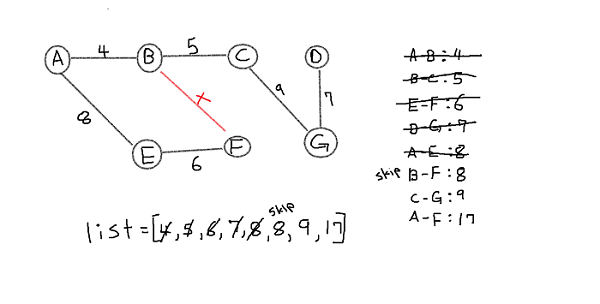 A 4 B 5 C D
8 9 7
E 6 F G
A-B:4
B-C:5
E-F:6
D-G:7
A-E:8
skip B-F:8
C-G:9
A-F:17
skip
list=[4,5,6,7,8,8,9,17]